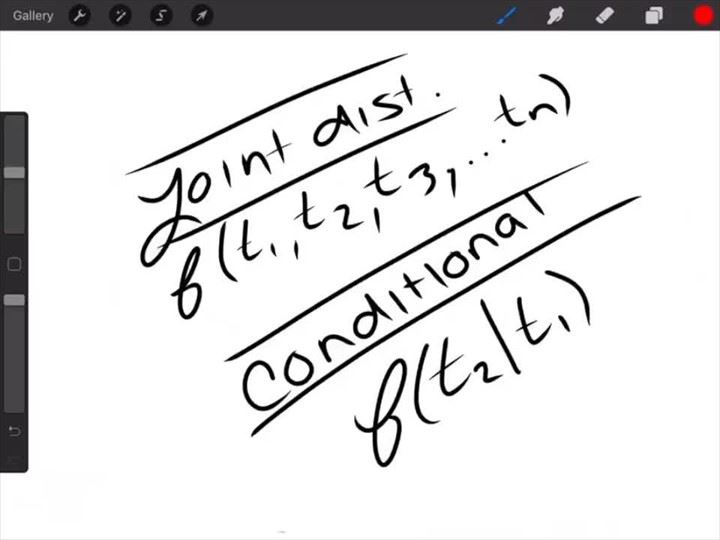 Gallery
Joint dist.
f(t1, t2, t3, ... tn)
Conditional
f(t2|t1)